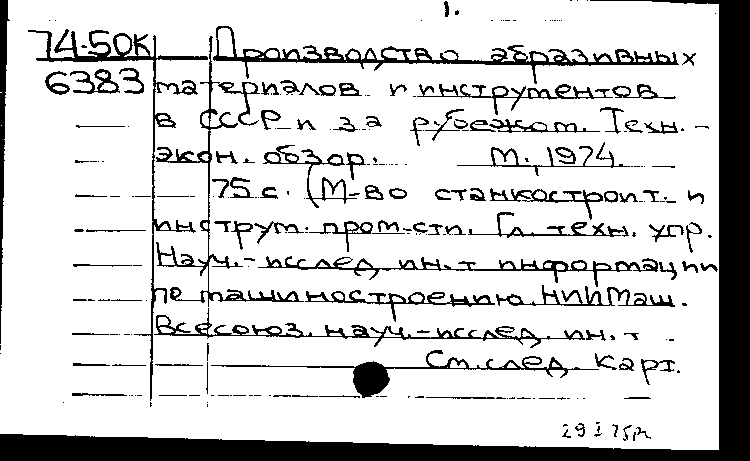 1.
74-50К Производство абразивных
6383 материалов и инструментов
в СССР и за рубежом. Техн.-
экон. обзор. М., 1974.
75 с. (М-во станкостроит. и
инструм. пром-сти. Гл. техн. упр.
Науч.-исслед. ин.-т информации
по машиностроению. НИИМаш.
Всесоюз. науч.-исслед. ин.-т
См. след. карт.
29 I 75